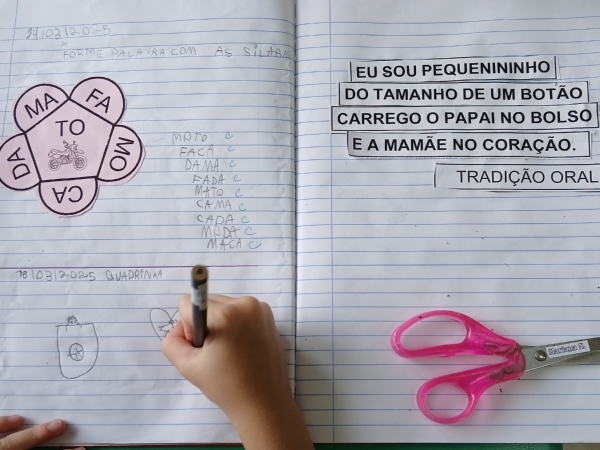 FORME PALAVRA COM AS SÍLABAS
MA
FA
DA
TO
MO
CA
MOTO C
FACA C
DAMA C
FADA C
MATO C
CAMA C
CADA C
MODA C
MACA C
18/03/2025 QUADRINHA
EU SOU PEQUENININHO
DO TAMANHO DE UM BOTÃO
CARREGO O PAPAI NO BOLSO
E A MAMÃE NO CORAÇÃO.
TRADIÇÃO ORAL